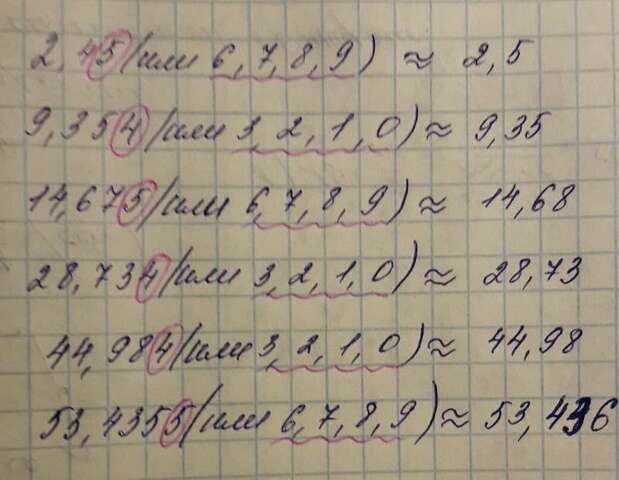 2,45 (или 6, 7, 8, 9) ≈ 2,5
9,354 (или 3, 2, 1, 0) ≈ 9,35
14,675 (или 6, 7, 8, 9) ≈ 14,68
28,734 (или 3, 2, 1, 0) ≈ 28,73
44,984 (или 3, 2, 1, 0) ≈ 44,98
53,4355 (или 6, 7, 8, 9) ≈ 53,436